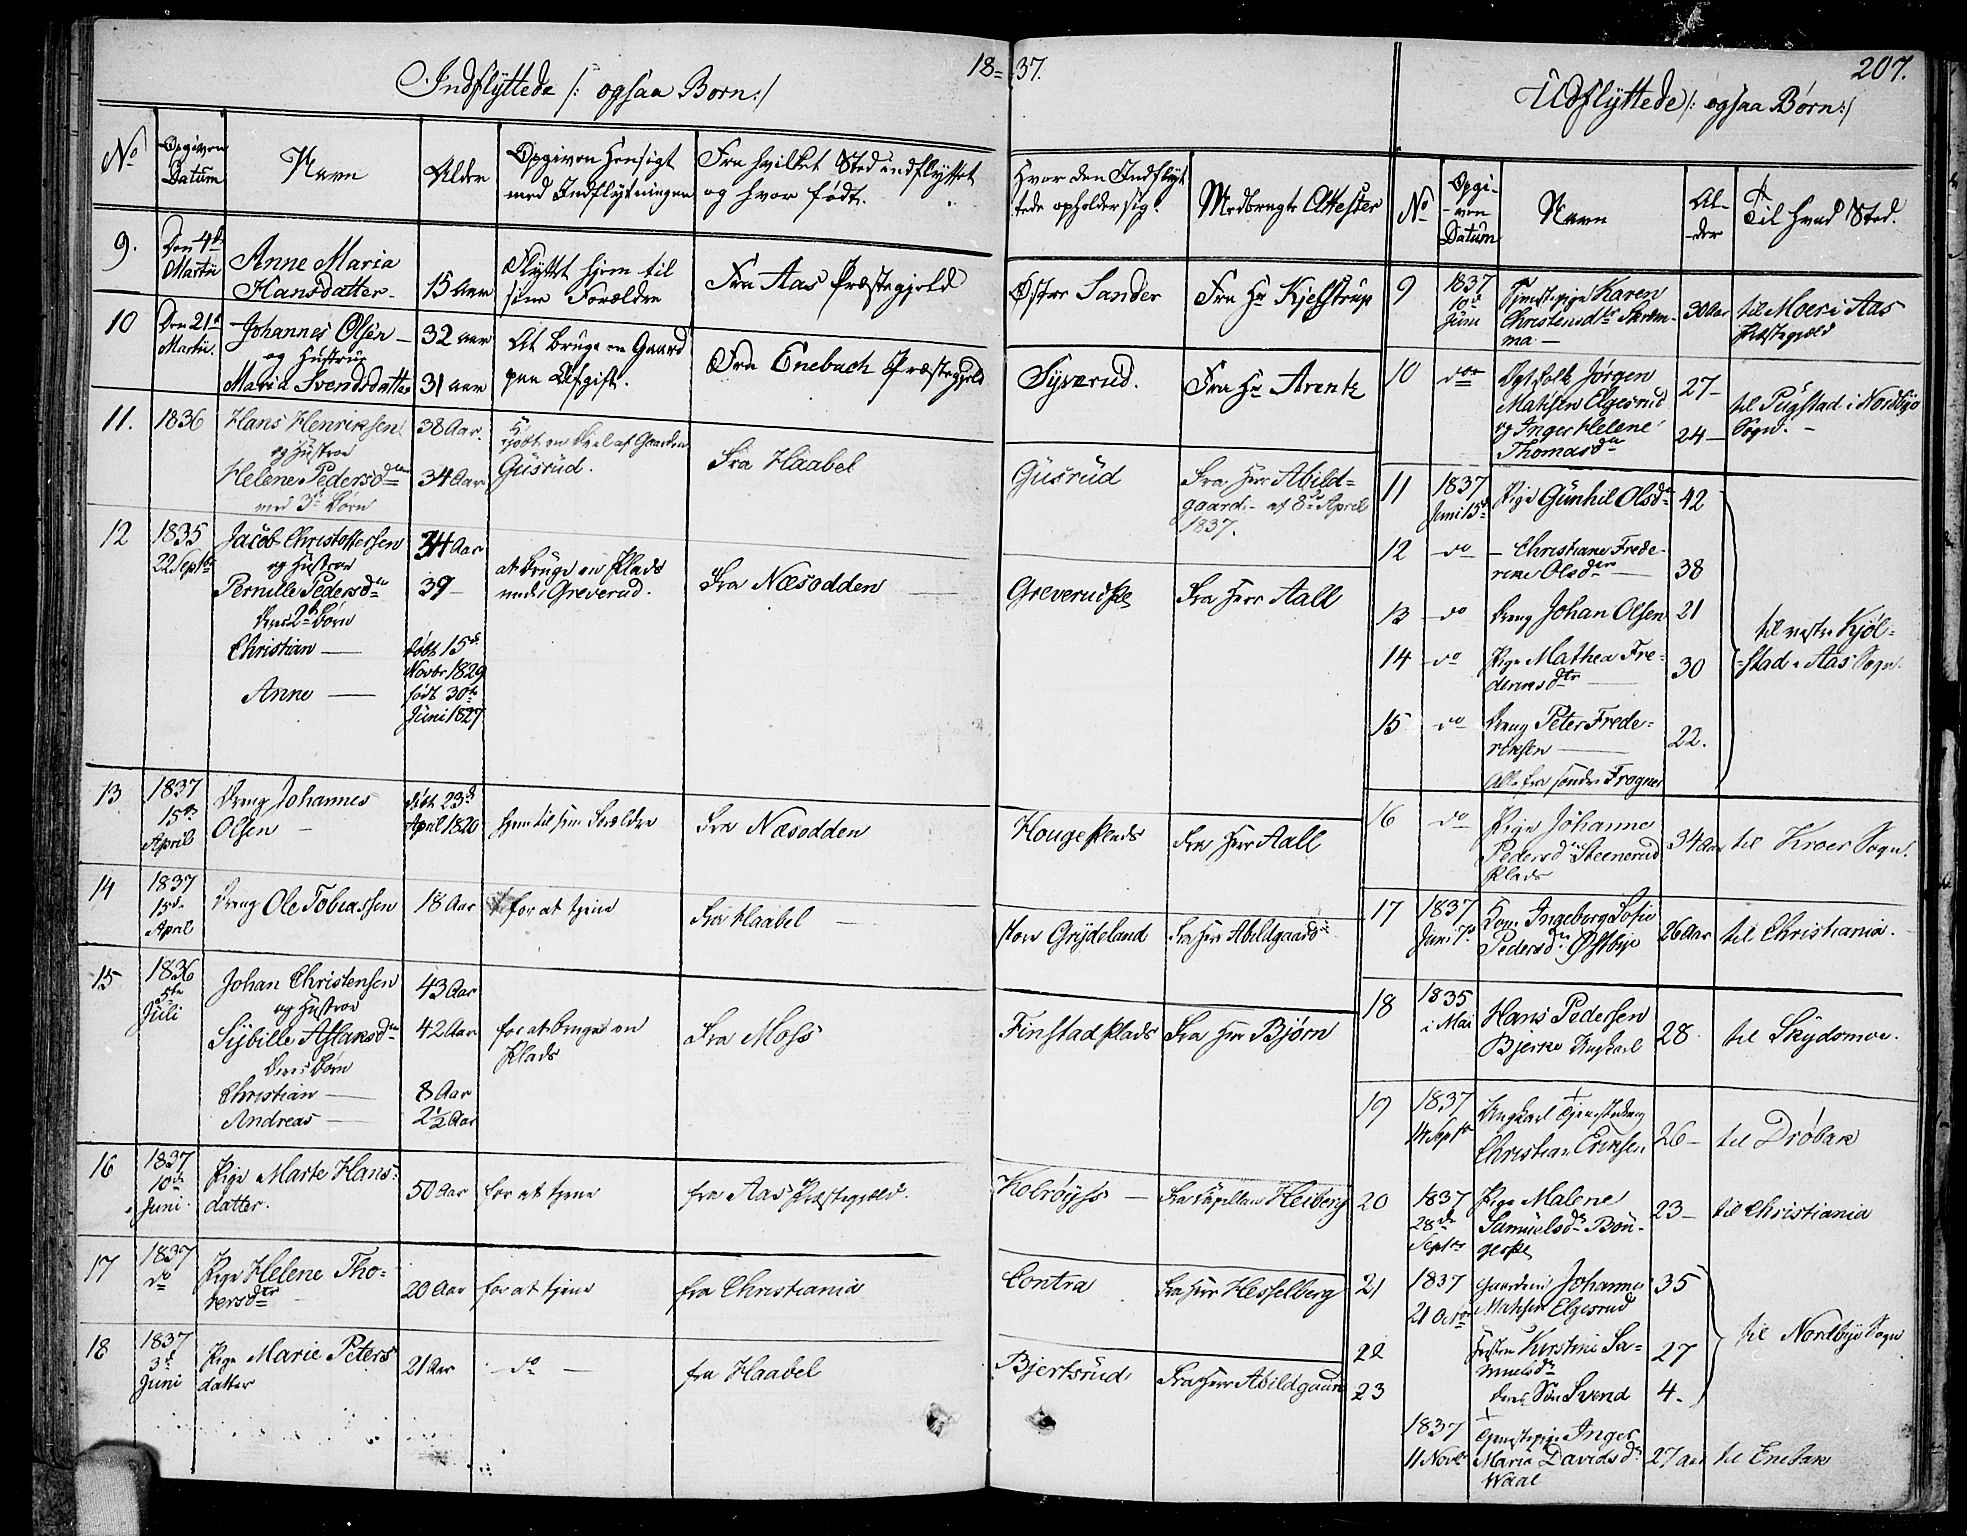 18=37.
207.
Indflyttede /: ogsaa Børn :/
No
Opgiven Datum
Navn
Alder
Opgiven Hensigt med Indflytningen
Fra hvilket Sted indflyttet og hvor født.
Hvor den Indflyttede opholder sig.
Medbragte Attester
9.
Den 4de Martii
Anne Maria Hansdatter
15 Aar
Flyttet hjem til sine Forældre
Fra Aas Præstegjeld
Østre Sander
Fra Hr Kjelstrup
10
Den 21de Martii.
Johannes Olsen
og Hustrue
Maria Svendsdatter
32 aar
31 aar
At bruge en Gaard paa Afgift.
Fra Enebach Præstegjeld
Syverud.
Fra Hr Arentz
11.
1836
Hans Henriksen
og Hustroe
Helene Pedersdtr
med 3de Børn
38 Aar.
34 Aar
kjøbt en Deel af Gaarden Gusrud.
Fra Haabel
Gusrud
Fra Herr Abildgaard.- af 8de April 1837.
12
1835
22 Septbr
Jacob Christoffersen
og Hustroe
Pernille Pedersdtr
deres 2de Børn
Christian —
Anne —
34 Aar
39 –
født 15de Novbr 1829
født 30te Juni 1827
at bruge en Plads under Greverud.
Fra Næsodden
Greverudpl
Fra Herr Aall
13
1837
15de April
Dreng Johannes Olsen
født 23de April 1820
hjem til sine Forældre
Fra Næsodden
Hougeplads
Fra Herr Aall
14
1837
15de April
Dreng Ole Tobiassen
18 Aar
for at tjene
Fra Haabel
store Grydeland
Fra Herr Abildgaard
15
1836
5te Juli
Johan Christensen
og Hustroe
Sybille Aslaksdtr
deres Børn
Christian —
Andreas —
43 Aar
42 Aar
8 Aar
2½ Aar
for at bruge en Plads
Fra Moss
Finstadplads
Fra Herr Bjørn
16
1837
10de Juni
Pige Marte Hansdatter.
50 Aar
for at tjene
fra Aas Præstegjeld.
Kolrøiyss —
Fra Capellan Heiberg
17
1837
do
Pige Helene Thorersdtr
20 Aar
for at tjene
fra Christiania
Contra
Fra Herr Hesselberg
18
1837
3de Juni
Pige Marie Petersdatter
21 Aar
do
fra Haabel
Bjertsrud
Fra Herr Abildgaard
Udflyttede /: ogsaa Børn :/
No
Opgiven Datum
Navn
Alder
Til hvad Sted.
9
1837
10de Juni
Tjenestepige Karen Christensdtr
30 Aar
til Moer i Aas Præstegjeld
10
do
Jørgen Mathisen Elgesrud
og Inger Helene Thomasdtr
27 –
24 –
til Pugstad i Nordbye Sogn.
11
1837
Juni 15de
Pige Gunhil Olsdtr
42
12
do
– Christiane Frederike Olsdtr
38
13
do
Dreng Johan Olsen
21
14
do
Pige Mathea Frederiksdtr
30
15
do
Dreng Peter Frederiksen
22.
Alle fra søndre Frogner
til vestre Kjølstad i Aas Sogn.
16
do
Pige Johanne Pedersdtr Steenerud Plads
34 Aar
til Kroer Sogn.
17
1837
Juni 7de
Ingeborg Sofie Pedersdtr Østbye
26 Aar
til Christiania.
18
1835
i Mai
Hans Pedersen Bjerke Ungkarl
28
til Skydsmoe.
19
1837
14 Septbr
Ungkarl Tjenestedreng Christian Eriksen
26 –
til Drøbak
20
1837
28de Septbr
Pige Malene Samuelsdtr
23 –
til Christiania
21
1837
21 Octbr
Gaardmd Johannes Mathisen Elgesrud
35
22
Hustru Kirstine Samuelsdtr
27
23
deres Søn Svend
4 –
til Nordbye Sogn
1837
11 Novbr
Tjenestepige Inger Maria Davidsdtr Waal
27 Aar
til Enebak